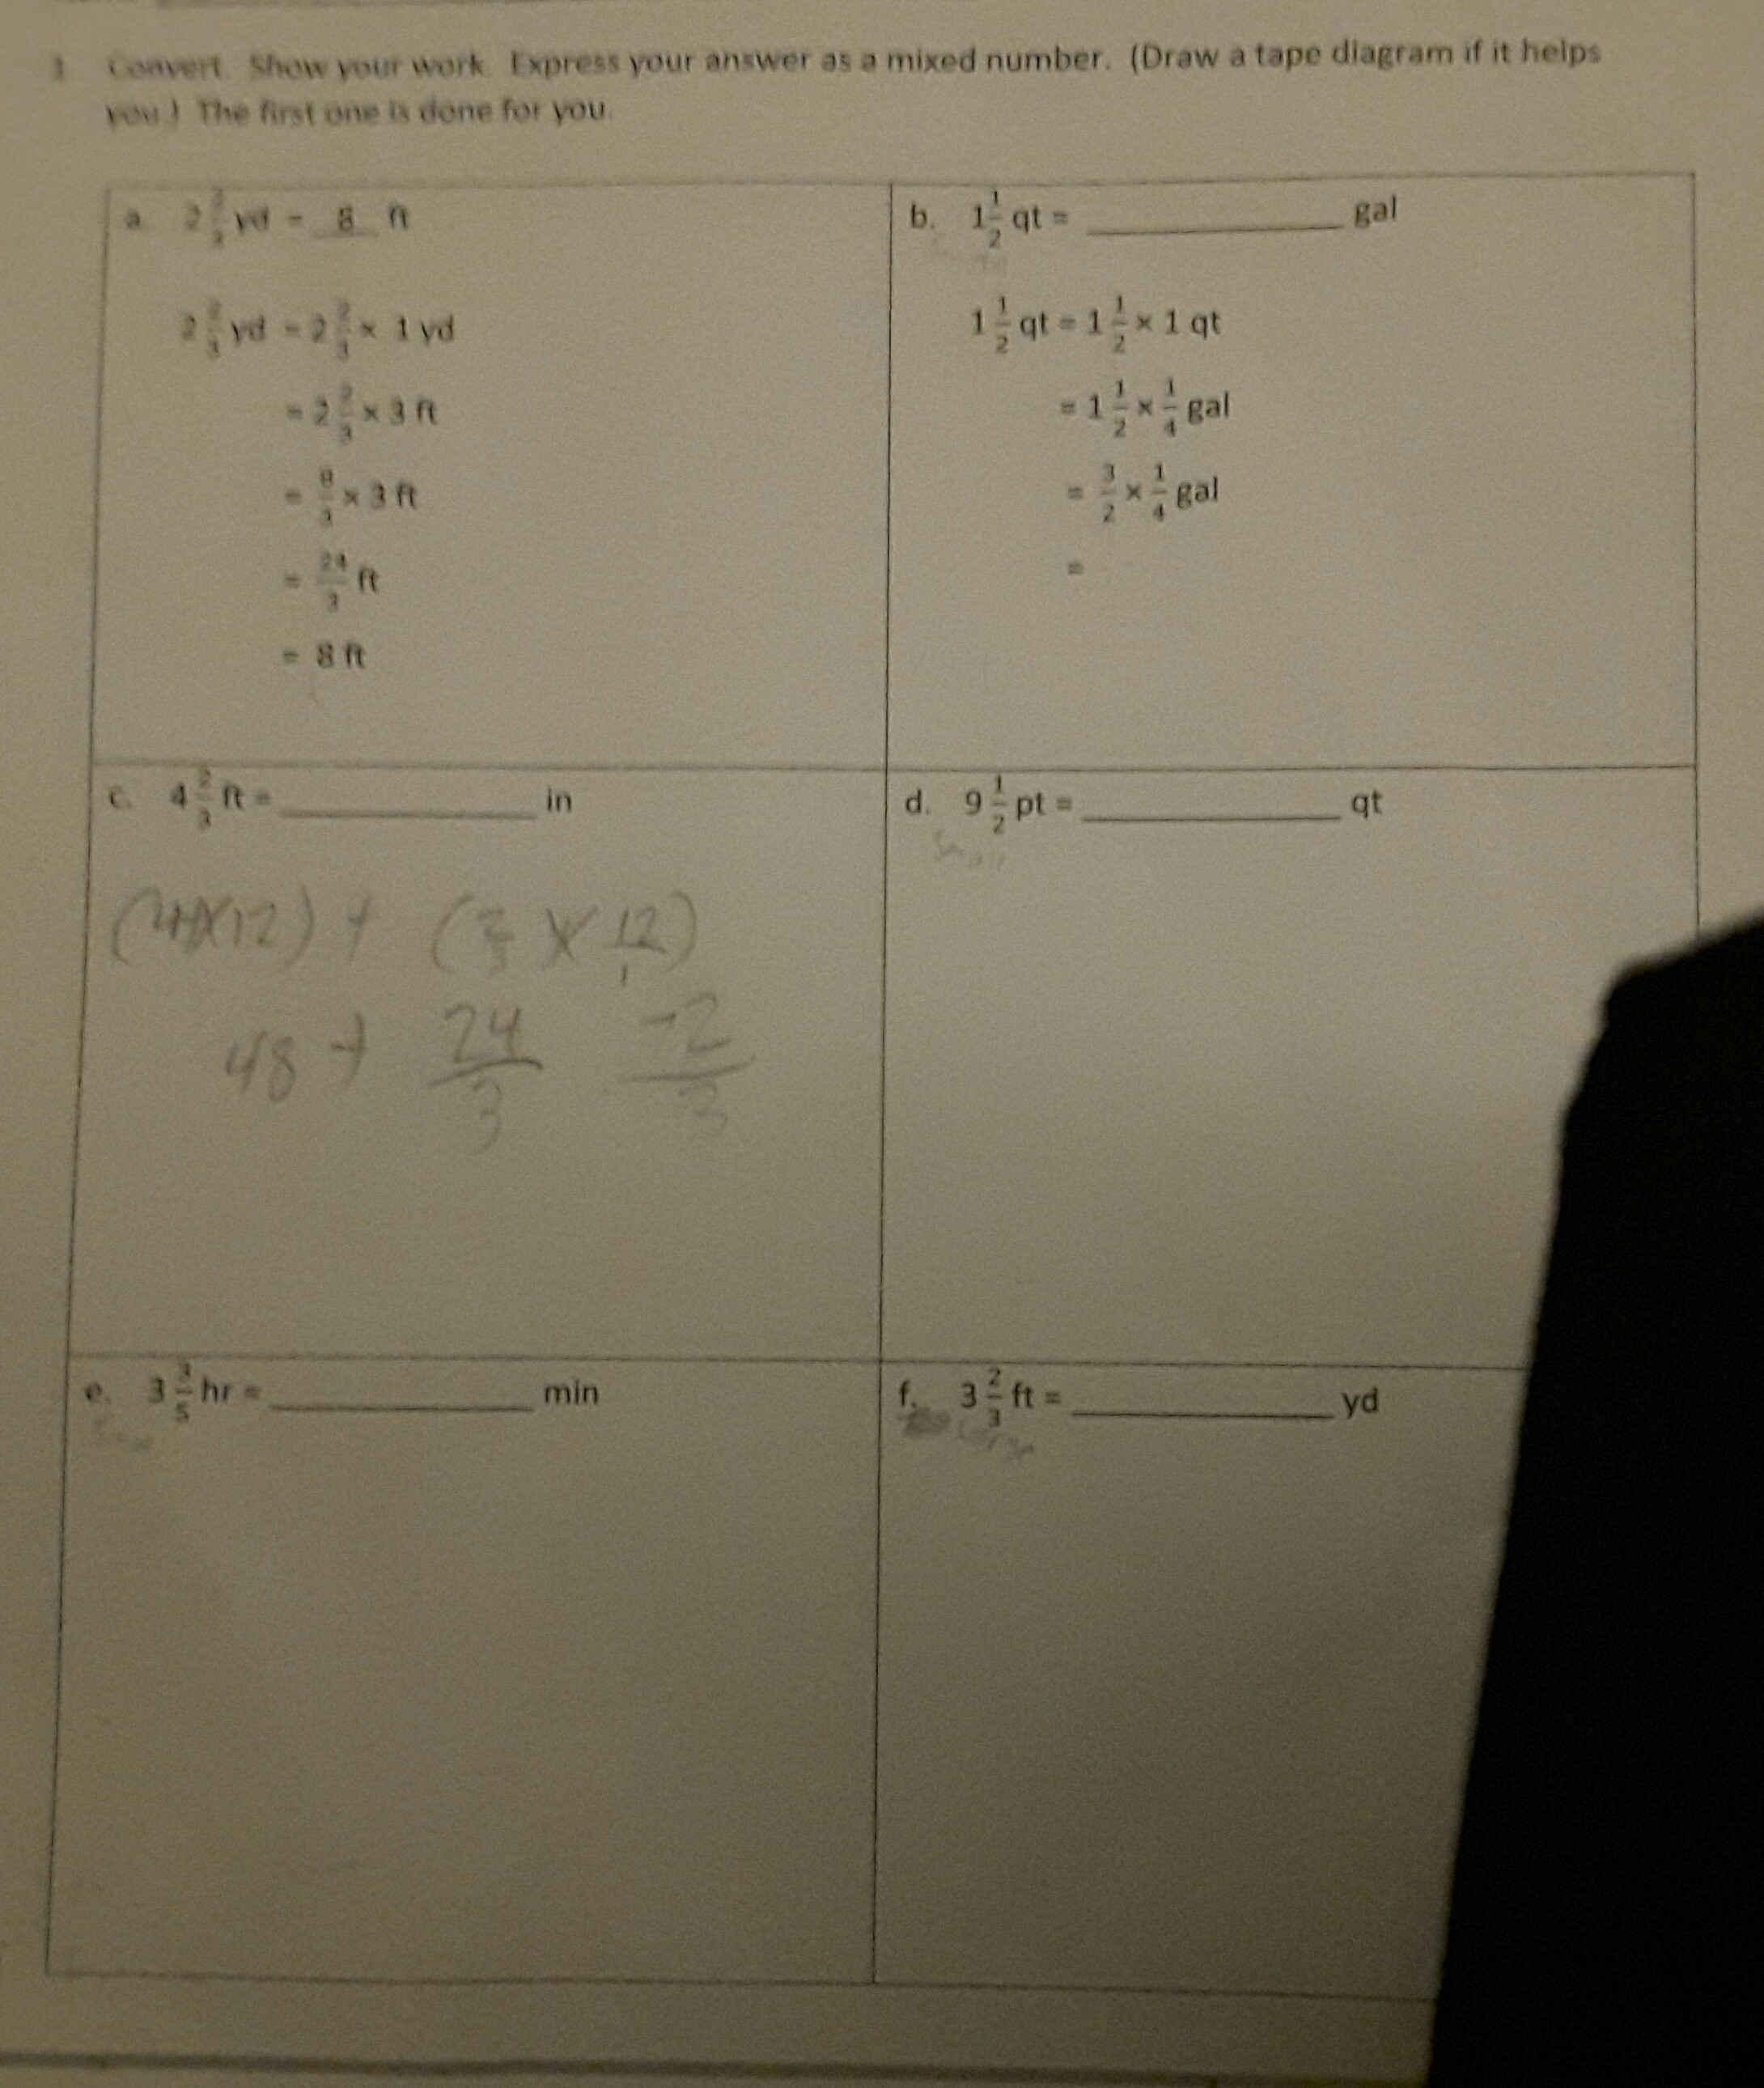 Convert. Show your work. Express your answer as a mixed number. (Draw a tape diagram if it helps
you.) The first one is done for you.
a. 2 2/3 yd = 8 ft
2 2/3 yd = 2 2/3 × 1 yd
= 2 2/3 × 3 ft
= 8/3 × 3 ft
= 24/3 ft
= 8 ft
b. 1 1/2 qt = ____________ gal
1 1/2 qt = 1 1/2 × 1 qt
= 1 1/2 × 1/4 gal
= 3/2 × 1/4 gal
=
c. 4 2/3 ft = ____________ in
(4×12) + (2/3 × 12/1)
48 + 24/3
d. 9 1/2 pt = ____________ qt
e. 3 3/5 hr = ____________ min
f. 3 2/3 ft = ____________ yd